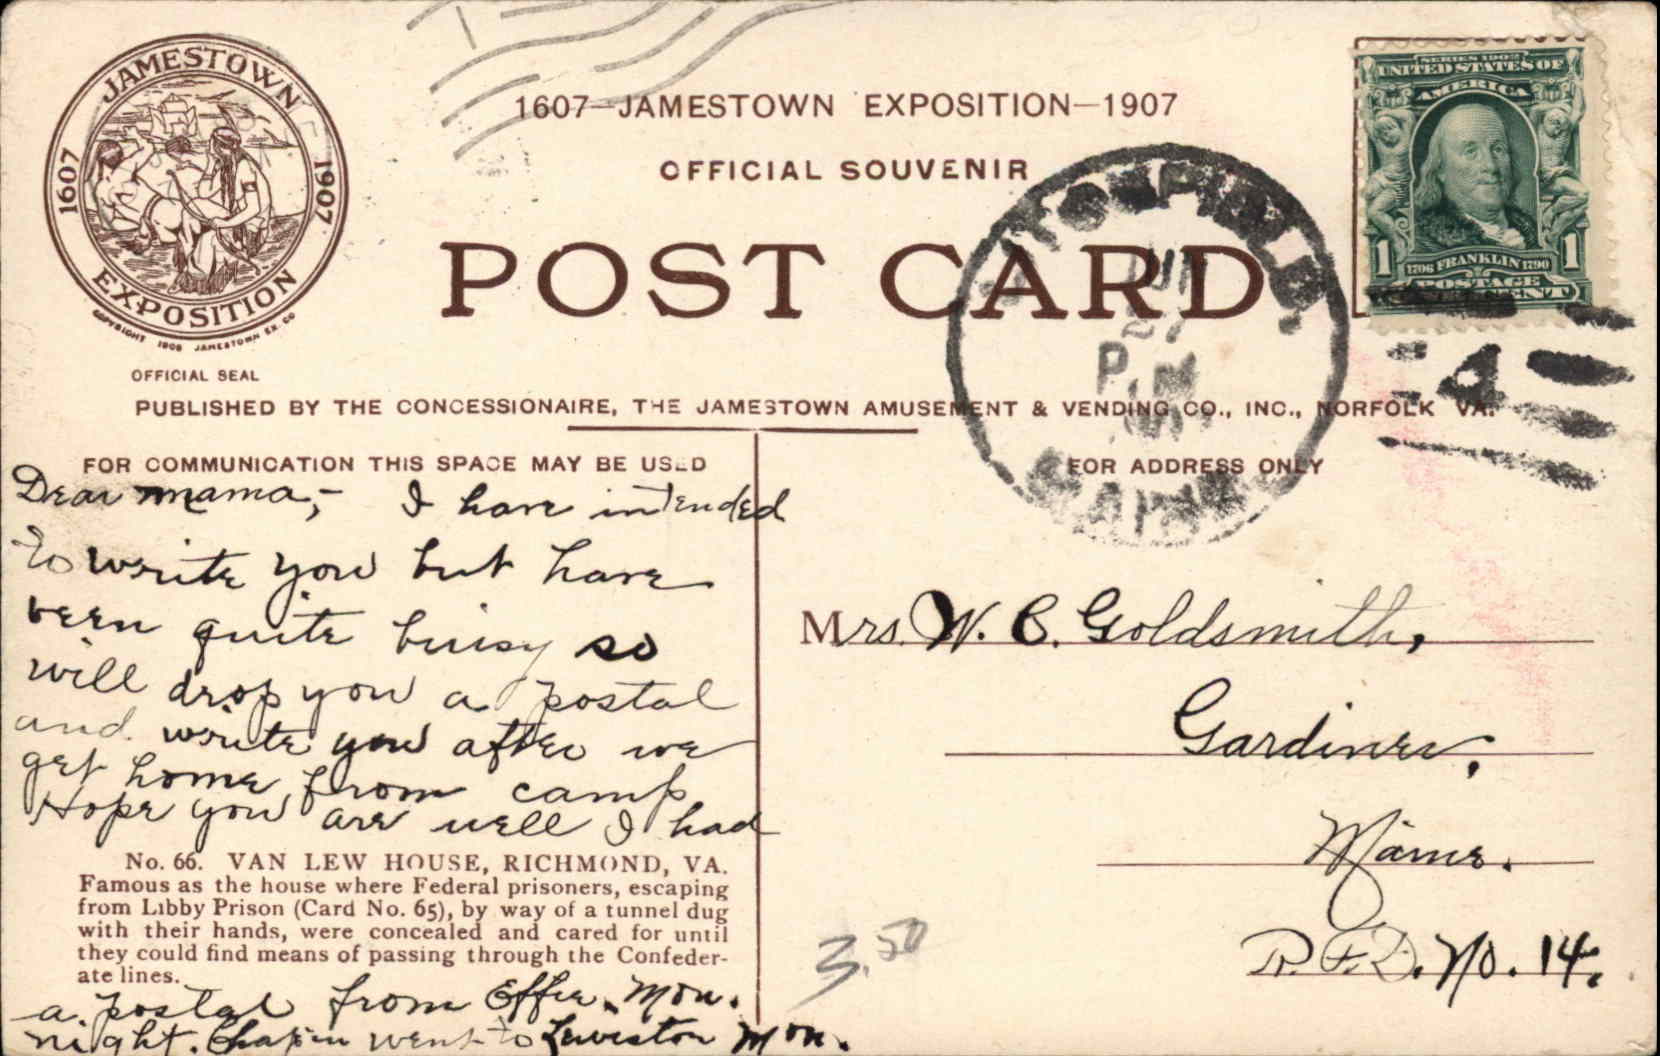 JAMESTOWN
1607 1907
EXPOSITION
COPYRIGHT 1906 JAMESTOWN EX. CO
OFFICIAL SEAL
1607—JAMESTOWN EXPOSITION—1907
OFFICIAL SOUVENIR
POST CARD
SERIES 1902
UNITED STATES OF
AMERICA
1 1706 FRANKLIN 1790 1
POSTAGE
CENT
27
P.M
4
PUBLISHED BY THE CONCESSIONAIRE, THE JAMESTOWN AMUSEMENT & VENDING CO., INC., NORFOLK VA.
FOR COMMUNICATION THIS SPACE MAY BE USED
FOR ADDRESS ONLY
Dear mama,- I have intended
to write you but have
been quite buisy so
will drop you a postal
and write you after we
get home from camp
Hope you are well I had
No. 66. VAN LEW HOUSE, RICHMOND, VA.
Famous as the house where Federal prisoners, escaping
from Libby Prison (Card No. 65), by way of a tunnel dug
with their hands, were concealed and cared for until
they could find means of passing through the Confeder-
ate lines.
a postal from Effie. Mon.
night. Chapin went to Lewiston Mon.
Mrs. W. C. Goldsmith,
Gardiner,
Maine.
R.F.D. No. 14.
3.50